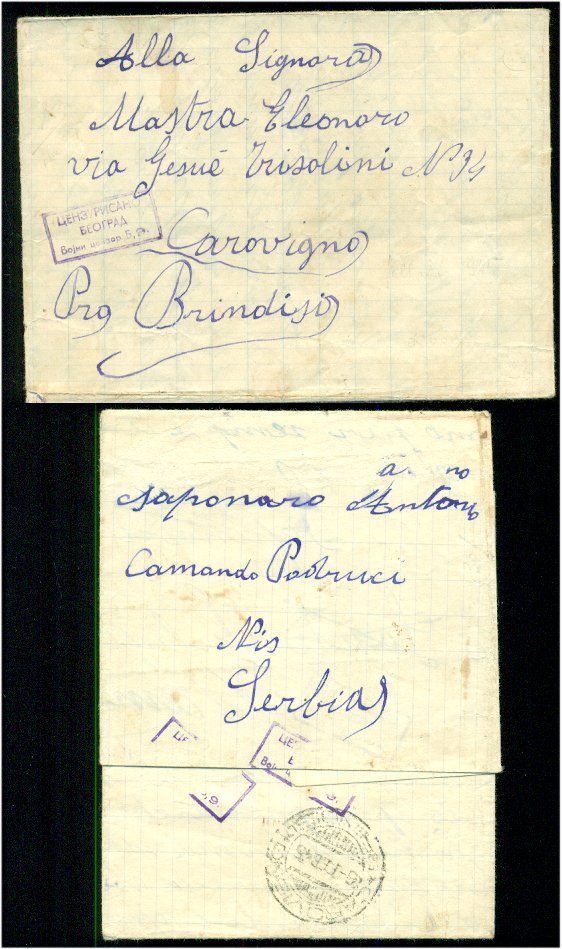 Alla Signora
Mastra Eleonoro
via Gesuè Trisolini N 34
ЦЕНЗУРИСАН
БЕОГРАД
Војни цензор Б,9.
Carovigno
Pro Brindisi
a no
Saponaro Antonio
Comando Podrucí
Nis
Serbia
ЦЕ
ЦЕН
Б
Вој
,9.
9.